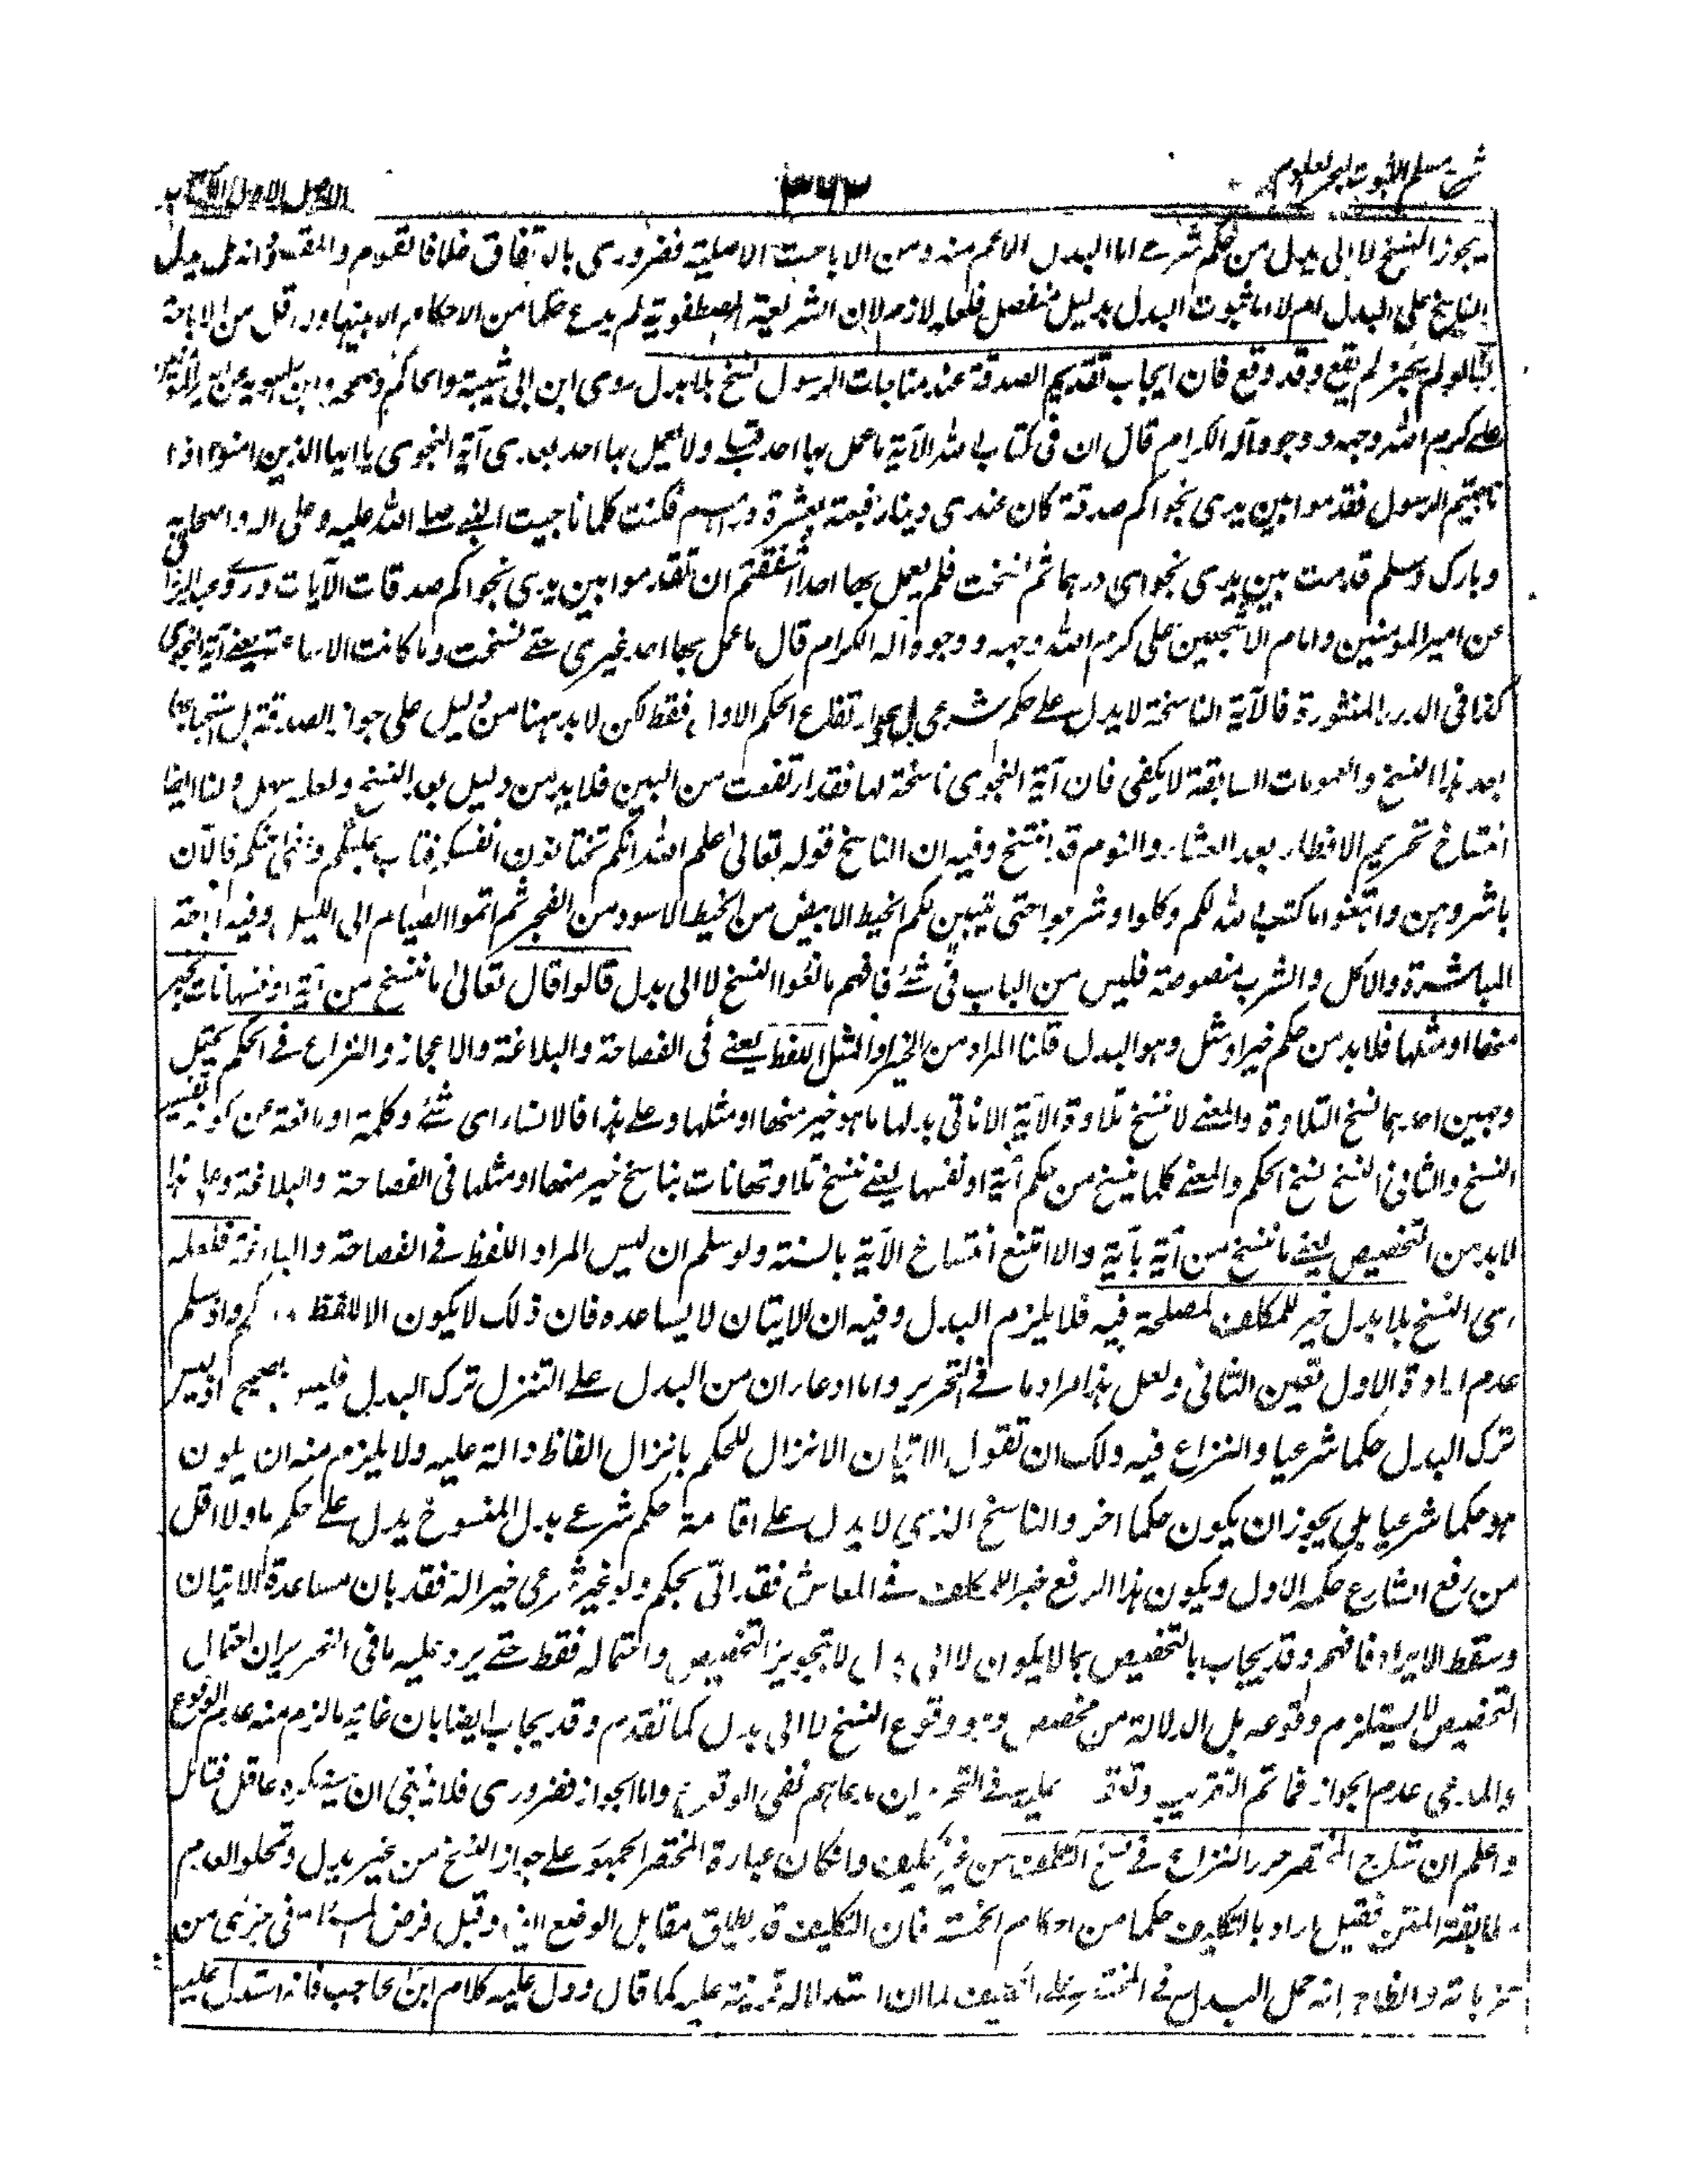 شرح مسلم الثبوت لبحر العلوم
٣٦٣
الاصل الاول الكتاب
يجوز النسخ لا الى بدل من حكم شرعے اما البدل الاعم منه ومن الاباحة الاصلية فضروری بالاتفاق خلافا لقوم والمقصود انه هل يدل
الناسخ على البدل ام لا اما ثبوت البدل بدليل منفصل فلعله لازم لان الشريعة المصطفوية لم يدع حكما من الاحكام الا بينها ولا اقل من الاباحة
لنا لو لم يجز لم يقع وقد وقع فان ايجاب تقديم الصدقة عند مناجات الرسول نسخ بلا بدل روى ابن ابی شيبة والحاكم وصححه وابن راهويه عن امير المؤمنين
على كرم الله وجهه ووجوه آله الكرام قال ان فى كتاب الله لآية ما عمل بها احد قبلے ولا يعمل بها احد بعدی آية النجوى يا ايها الذين امنوا اذا
ناجيتم الرسول فقدموا بين يدى نجواكم صدقة كان عندی دينار فبعته بعشرة دراهم فكنت كلما ناجيت النبے صلے الله عليه وعلى اله واصحابه
وبارك وسلم قدمت بين يدى نجواى درهما ثم نسخت فلم يعمل بها احد أاشفقتم ان تقدموا بين يدى نجواكم صدقات الآيات وروے عبد الرزاق
عن امير المومنين وامام الاشجعين على كرم الله وجهه ووجوه اله الكرام قال ما عمل بها احد غيرى حتے نسخت وما كانت الا ساعة يعنے آية النجوى
كذا فى الدرر المنثورة فالآية الناسخة لا يدل علے حكم شرعى بل على ارتفاع الحكم الاول فقط لكن لا بد ههنا من دليل على جواز الصدقة بل استحبابها
بعد هذا النسخ والعمومات السابقة لا يكفى فان آية النجوى ناسخة لها فقد ارتفعت من البين فلا بد من دليل بعد النسخ ولعله سهل ولنا ايضا
انتساخ تحريم الافطار بعد العشاء والنوم قد انتسخ وفيه ان الناسخ قوله تعالى علم الله انكم تختانون انفسكم فتاب عليكم وعفى عنكم فالآن
باشروهن وابتغوا ما كتب الله لكم وكلوا واشربوا حتى يتبين لكم الخيط الابيض من الخيط الاسود من الفجر ثم اتموا الصيام الى الليل وفيه اباحة
المباشرة والاكل والشرب منصوصة فليس من الباب فى شئ فافهم مانعوا النسخ لا الى بدل قالوا قال تعالى ما ننسخ من آية او ننسها نات بخير
منها او مثلها فلا بد من حكم خير او مثل وهو البدل قلنا المراد من الخير والمثل اللفظ يعنے فى الفصاحة والبلاغة والاعجاز والنزاع فے الحكم يحتمل
وجهين احدهما نسخ التلاوة والمعنے لا ننسخ تلاوة الآية الا ناتى بدلها ما هو خير منها او مثلها وعلے هذا فالانساء اى شئ وكلمة او مانعة عن كونه تفسير
النسخ والثانى النسخ نسخ الحكم والمعنے كلما ننسخ من حكم آية او ننسها يعنے ننسخ تلاوتها نات بناسخ خير منها او مثلها فى الفصاحة والبلاغة وعلے هذا
لا بد من التخصيص يعنے ما ننسخ من آية بآية والا امتنع انتساخ الآية بالسنة ولو سلم ان ليس المراد اللفظ فے الفصاحة والبلاغة فلعله
اى النسخ بلا بدل خير للمكلف لمصلحة فيه فلا يلزم البدل وفيه ان الاتيان لا يساعده فان ذلك لا يكون الا للفظ واذ سلم
عدم ارادة الاول تعين الثانى ولعل هذا مراد ما فے التحرير واما ادعاء ان من البدل علے التنزل ترك البدل فليس بصحيح اذ ليس
ترك البدل حكما شرعيا والنزاع فيه ولك ان تقول الاتيان الانزال للحكم بانزال الفاظ دالة عليه ولا يلزم منه ان يكون
هو حكما شرعيا بل يجوز ان يكون حكما اخر والناسخ الذى لا يدل علے اقامة حكم شرعے بدل المنسوخ يدل علے حكم ما ولا اقل
من رفع الشارع حكمه الاول ويكون هذا الرفع خيرا للمكلف فے المعاش فقد اتى بحكم ولو غير شرعى خير اله فقد بان مساعدة الاتيان
وسقط الايراد فافهم وقد يجاب بالتخصيص بما لا يكون لا الى بدل لا تجويز التخصيص واحتماله فقط حتے يرد عليه ما فى التحرير ان احتمال
التخصيص لا يستلزم وقوعه بل الدلالة من مخصص وهو وقوع النسخ لا الى بدل كما تقدم وقد يجاب ايضا بان غاية ما لزم منه عدم الوقوع
والمدعى عدم الجواز فما تم التقريب وتعقب عليه فے التحرير ان مدعاهم نفى الوقوع واما الجواز فضرورى فلا ينبغى ان ينكره عاقل فتامل
واعلم ان شارح المختصر حرر النزاع فے نسخ التكليف من غير تكليف وانكان عبارة المختصر الجمهور علے جواز النسخ من غير بدل وتحملوا لعدم
مطابقة المتن فقيل اراد بالتكليف حكما من الاحكام الخمسة فان التكليف قد يطلق مقابل الوضع وقيل فرض المسئلة فى جزئى من
جزئياته والظاهر انه حمل البدل فے المختصر علے التكليف لما ان استدلاله قرينة عليه كما قال ودل عليه كلام ابن الحاجب فانه استدل عليه